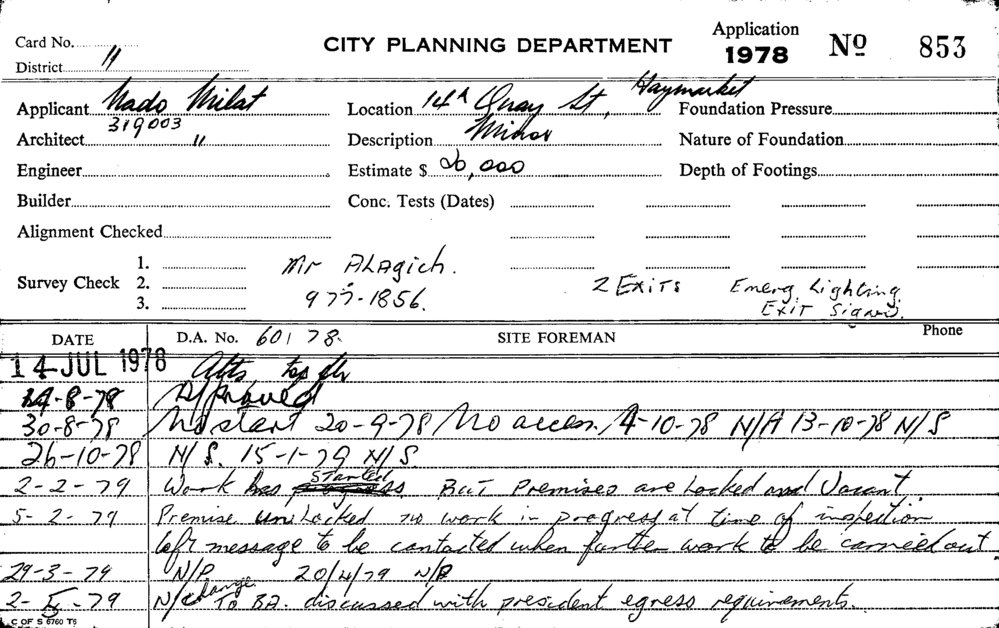 Card No.
CITY PLANNING DEPARTMENT
Application
1978
№ 853
District 11
Applicant Nado Milat
Location 14A Quay St, Haymarket
Foundation Pressure
319003
Architect "
Description Minor
Nature of Foundation
Engineer
Estimate $ 20,000
Depth of Footings
Builder
Conc. Tests (Dates)
Alignment Checked
Survey Check 1.
2.
3.
Mr Alagich.
977-1856.
2 Exits Emerg Lighting
Exit Signs.
DATE
D.A. No. 601 78.
SITE FOREMAN
Phone
14 JUL 1978 Alts top flr
-8-78 Approved
30-8-78 No start 20-9-78 No access 4-10-78 N/A 13-10-78 N/S
26-10-78 N/S. 15-1-79 N/S
2-2-79 Work has started But premises are Locked and Vacant,
5-2-79 Premise unlocked no work in progress at time of inspection
left message to be contacted when further work to be carried out
29-3-79 N/P 20/4/79 N/P
2-5-79 N/change to BA. discussed with president egress requirements.
C OF S 6760 T6